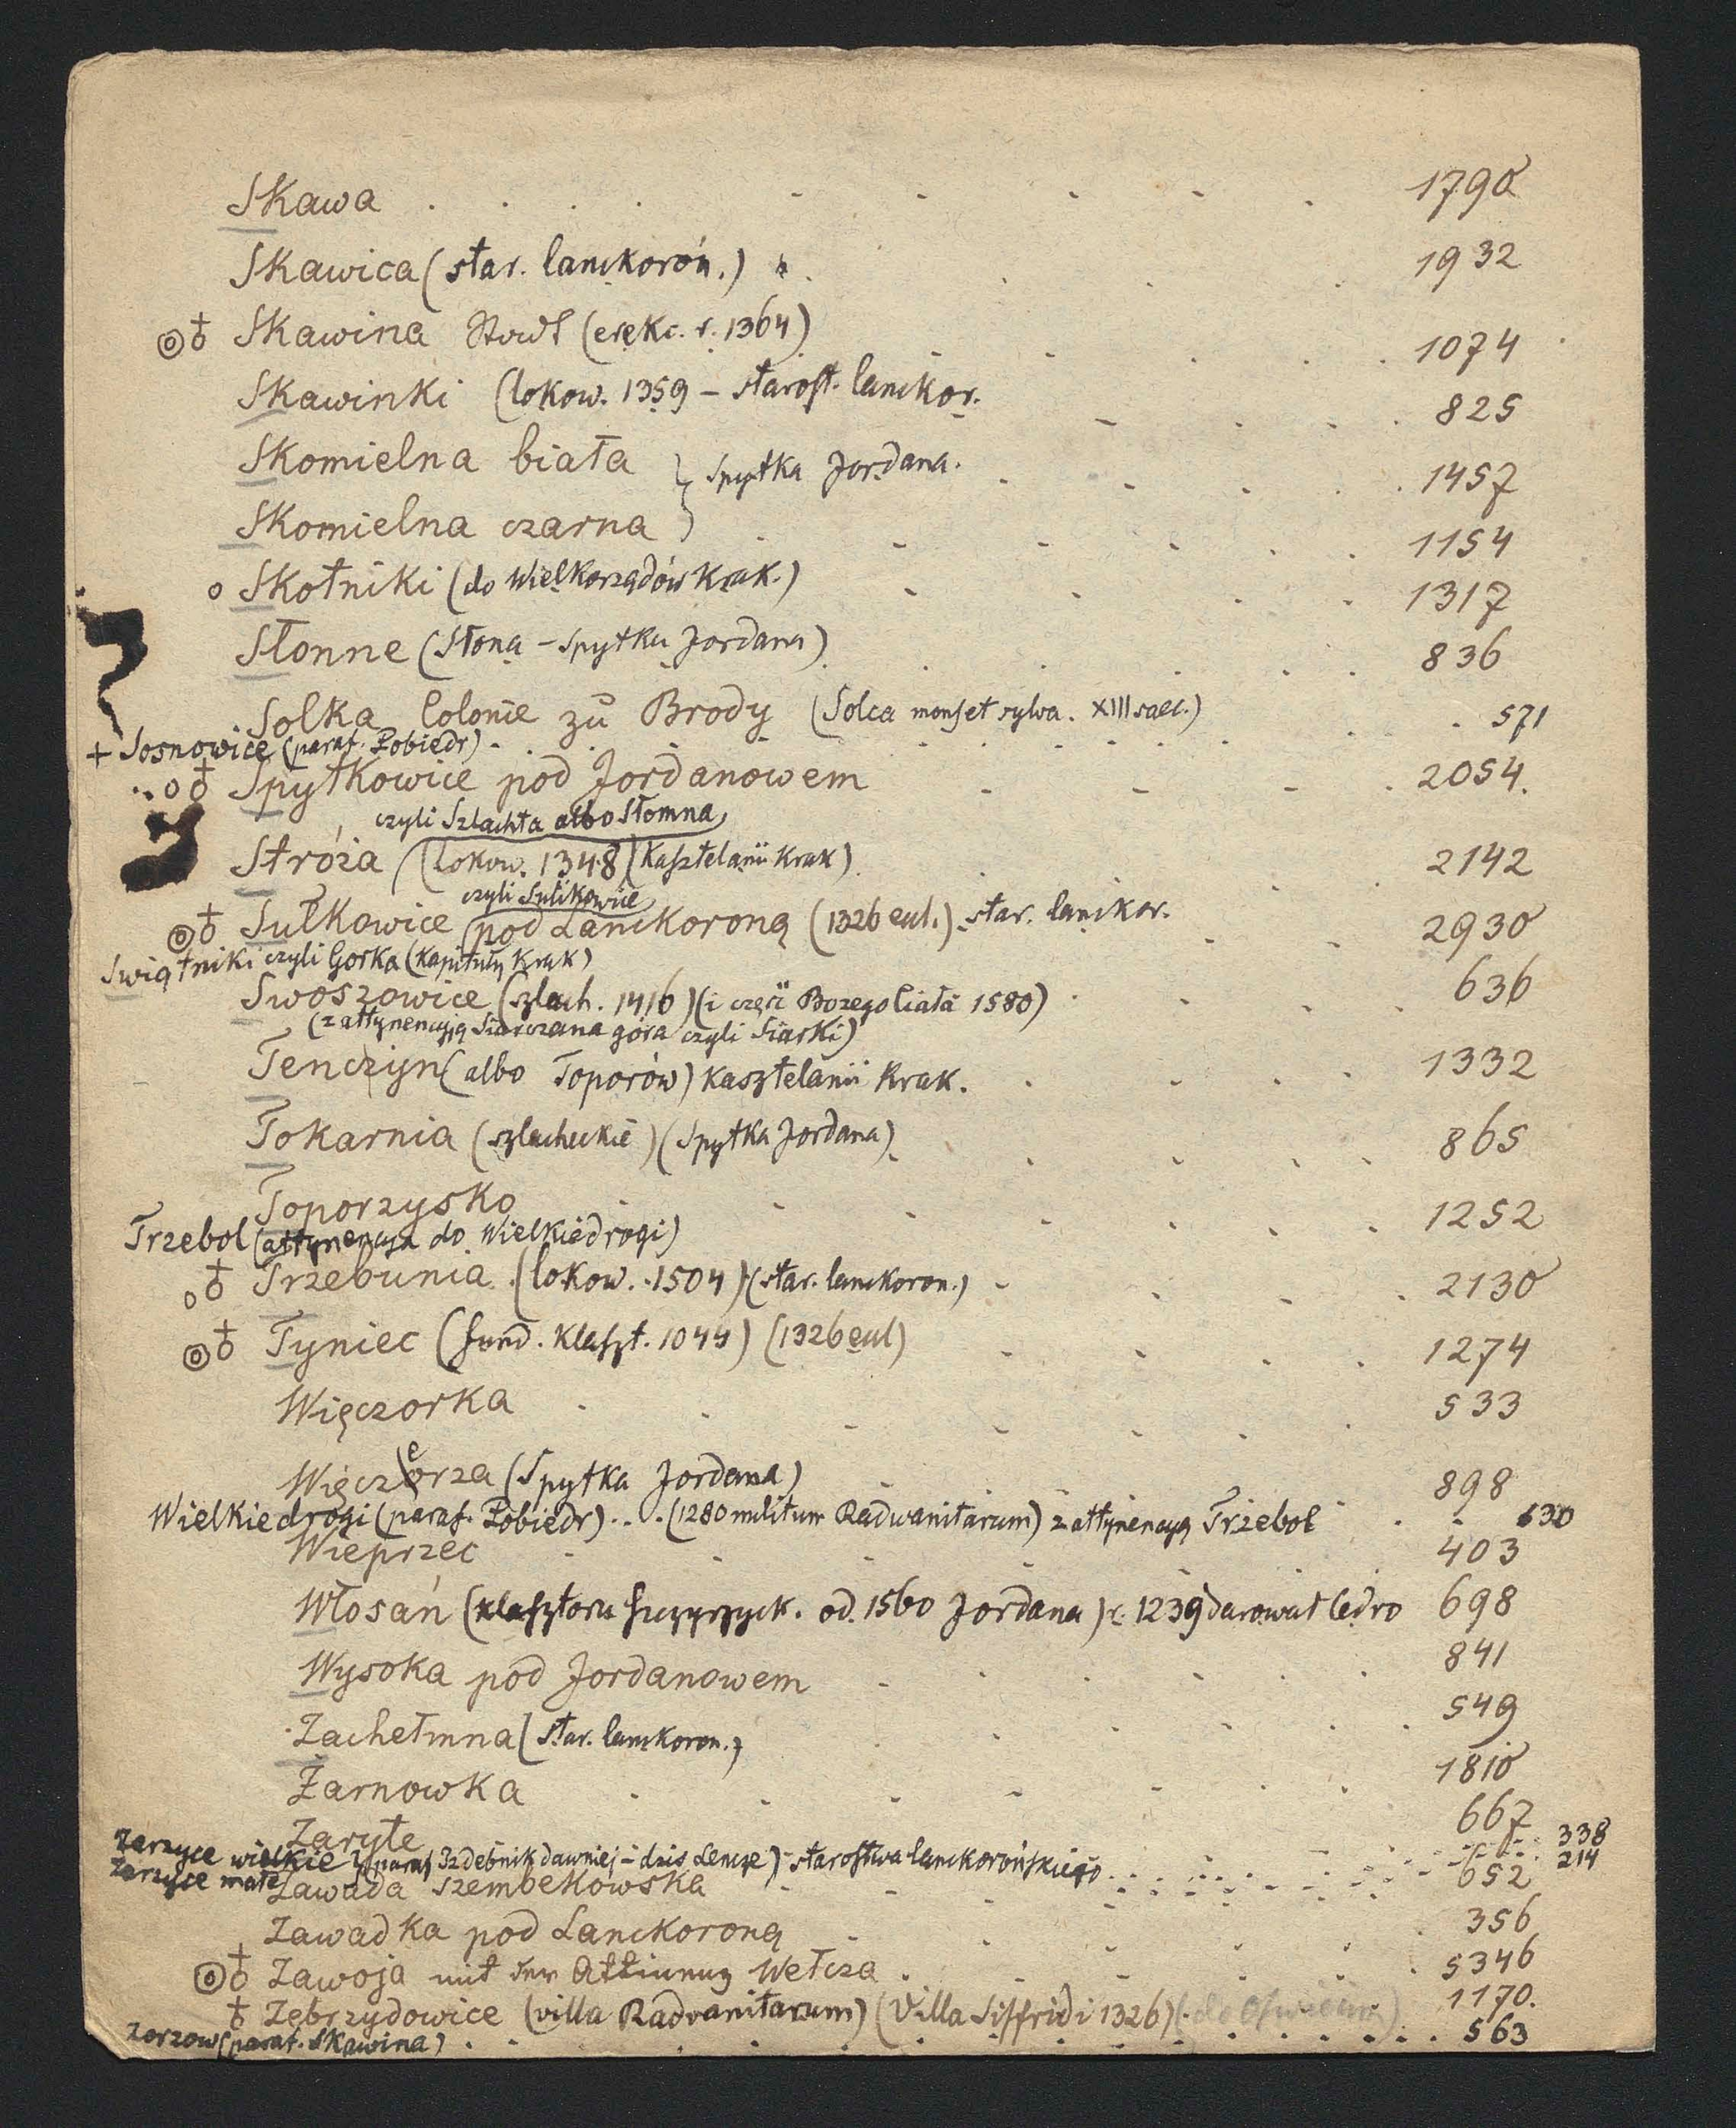 Skawa . . . . . . . . . 1790
Skawica (star. lanckoron.) . . . . 1932
Skawina Stadt (erekc. r. 1364) . . . . 1074
Skawinki (lokow. 1359 – starost. lanckor. . . . . 825
Skomielna biała } Spytka Jordana. . . . . 1457
Skomielna czarna } . . . . . . 1154
o Skotniki (do Wielkorządów Krak.) . . . . 1317
Słonne (Słona – Spytka Jordana) . . . . 836
Solka Colonie zu Brody (Solca mons et sylva. XIII saec.)
+ Sosnowice (paraf. Pobiedr) . . . . . . 571
Spytkowice pod Jordanowem . . . . 2054.
czyli Szlachta albo Słomna
Stróża (lokow. 1348) (Kasztelanii Krak) . . . 2142
czyli Sulikowice
Sułkowice pod Lanckoroną (1326 eccl.) star. lanckor. . . 2930
Swiątniki czyli Gorka (kapituły Krak)
Swoszowice (szlach. 1416) (i części Bozego Ciała 1580) . . . 636
(z attynencyją Siarczana góra czyli Siarki)
Tenczyn (albo Toporów) kasztelanii Krak. . . . . 1332
Tokarnia (szlacheckie) (Spytka Jordana) . . . . 865
Toporzysko . . . . . . . 1252
Trzebol (attynencya do Wielkiedrogi)
Trzebunia (lokow. 1504) (star. lanckoron.) . . . . 2130
Tyniec (fund. klaszt. 1044) (1326 eccl) . . . . 1274
Więczorka . . . . . . 533
e
Więczorza (Spytka Jordana) . . . 898
Wielkiedrogi (paraf. Pobiedr) . . . (1280 militum Radwanitarum) z attynencyą Trzebol . . 630
Wieprzec . . . 403
Włosań (klasztoru Szczyrzyck. od. 1560 Jordana) r. 1239 darował Cedro 698
Wysoka pod Jordanowem . . . . . 841
Zachełmna (star. lanckoron.) . . . . 549
Żarnowka . . . . . . 1810
Zaryte 667
Zarzyce wielkie } (paraf Izdebnik dawniej – dzis Lencze) – starostwa lanckorońskiego . . . 338
Zarzyce małe . . . 214
Zawada szembekowska . . . 652
Zawadka pod Lanckoroną . . . . 356
Zawoja mit der Wełcza . . . . 5346
Zebrzydowice (villa Radvanitarum) (Villa Siffridi 1326) 1170.
Zorzow (paraf. Skawina) . . . . . . 563